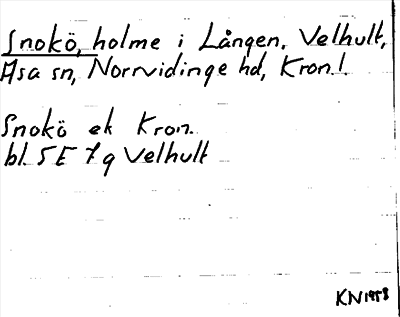 Snokö, holme i Lången. Velhult,
Asa sn, Norrvidinge hd, Kron.l.
Snokö ek Kron.
bl. 5E 7g Velhult
KN 1958